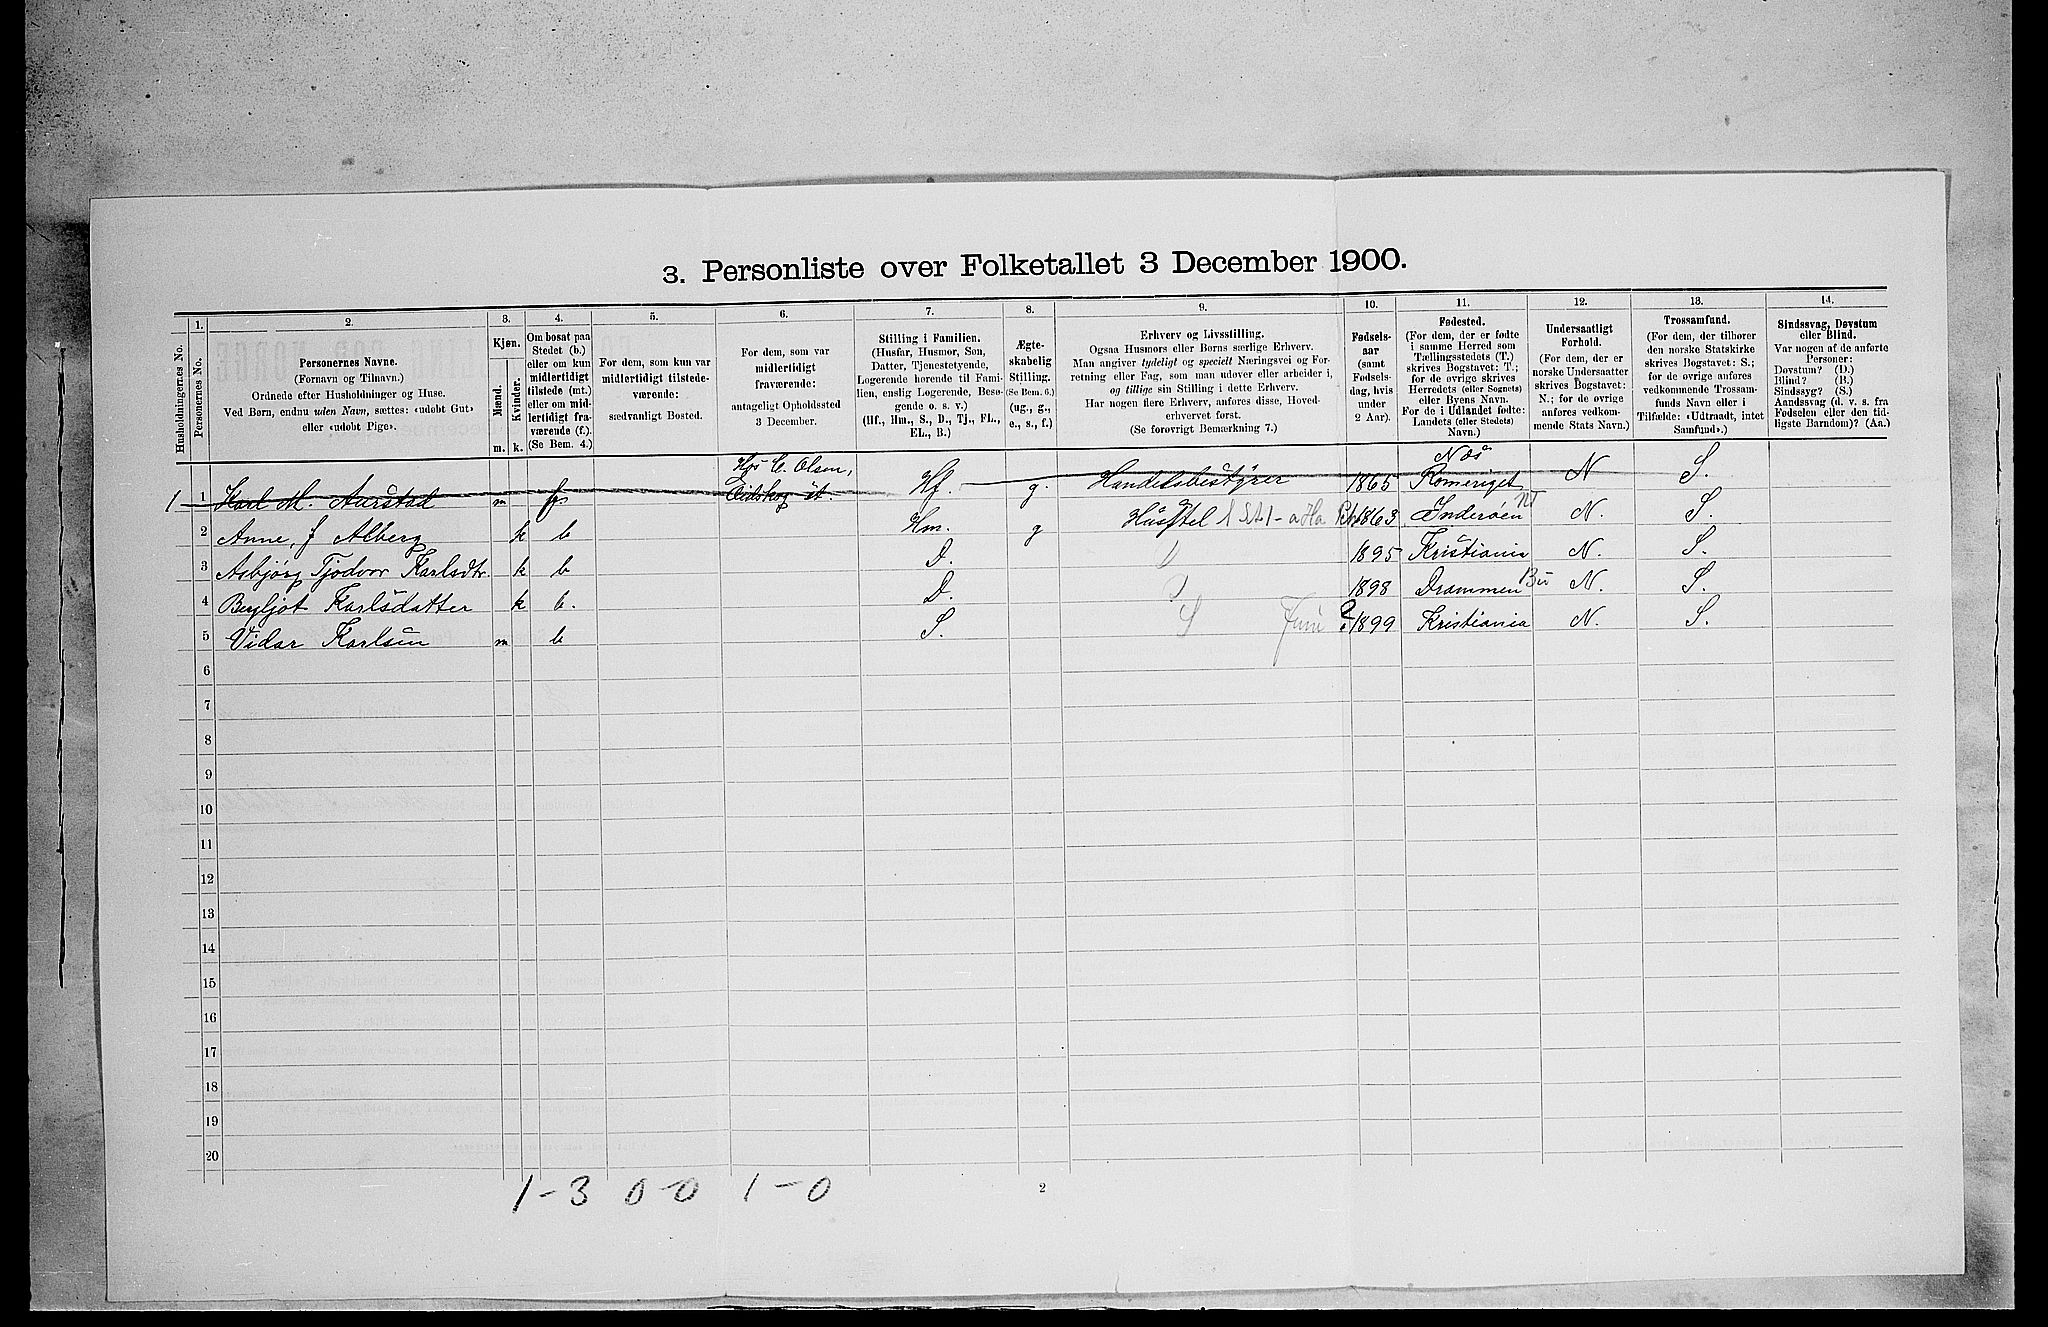 3. Personliste over Folketallet 3 December 1900.
Husholdningernes No.
1.
Personernes No.
2.
Personernes Navne.
(Fornavn og Tilnavn.)
Ordnede efter Husholdninger og Huse.
Ved Børn, endnu uden Navn, sættes: «udøbt Gut»
eller «udøbt Pige».
3.
Kjøn.
Mænd.
Kvinder.
m. k.
4.
Om bosat paa
Stedet (b.)
eller om kun
midlertidigt
tilstede (mt.)
eller om mid-
lertidigt fra-
værende (f.).
(Se Bem. 4.)
5.
For dem, som kun var
midlertidigt tilstede-
værende:
sædvanligt Bosted.
6.
For dem, som var
midlertidigt
fraværende:
antageligt Opholdssted
3 December.
7.
Stilling i Familien.
(Husfar, Husmor, Søn,
Datter, Tjenestetyende,
Logerende hørende til Fami-
lien, enslig Logerende, Besø-
gende o. s. v.)
(Hf., Hm., S., D., Tj., FL.,
EL., B.)
8.
Ægte-
skabelig
Stilling.
(Se Bem. 6.)
(ug., g.,
e., s., f.)
9.
Erhverv og Livsstilling.
Ogsaa Husmors eller Børns særlige Erhverv.
Man angiver tydeligt og specielt Næringsvei og For-
retning eller Fag, som man udøver eller arbeider i,
og tillige sin Stilling i dette Erhverv.
Har nogen flere Erhverv, anføres disse, Hoved-
erhvervet først.
(Se forøvrigt Bemærkning 7.)
10.
Fødsels-
aar
(samt
Fødsels-
dag, hvis
under
2 Aar).
11.
Fødested.
(For dem, der er fødte
i samme Herred som
Tællingsstedets (T.)
skrives Bogstavet: T.;
for de øvrige skrives
Herredets (eller Sognets)
eller Byens Navn.
For de i Udlandet fødte:
Landets (eller Stedets)
Navn.)
12.
Undersaatligt
Forhold.
(For dem, der er
norske Undersaatter
skrives Bogstavet:
N.; for de øvrige
anføres vedkom-
mende Stats Navn.)
13.
Trossamfund.
(For dem, der tilhører
den norske Statskirke
skrives Bogstavet: S.;
for de øvrige anføres
vedkommende Trossam-
funds Navn eller i
Tilfælde: «Udtraadt, intet
Samfund».)
14.
Sindssvag, Døvstum
eller Blind.
Var nogen af de anførte
Personer:
Døvstum? (D.)
Blind? (B.)
Sindssyg? (S.)
Aandssvag (d. v. s. fra
Fødselen eller den tid-
ligste Barndom)? (Aa.)
1 1 Karl M. Aarstad m f Hos C. Olsen, Eidskog st. Hf. g. Handelsbestyrer 1865 Næs Romeriget N S.
2 Anne, f Alberg k b Hm. g Husstel 1863 Inderøen NT N. S.
3 Asbjørg Tjodvor Karlsdtr. k b D. D 1895 Kristiania N. S.
4 Bergljot Karlsdatter k b. D. D 1898 Drammen Bu N. S.
5 Vidar Karlsen m b S. S Juni 1899 Kristiania N. S.
6
7
8
9
10
11
12
13
14
15
16
17
18
19
20
1-3 0-0 1-0
2